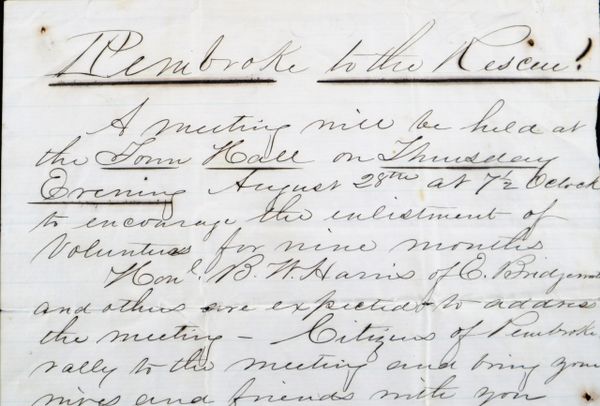 Pembroke to the Rescue!
A meeting will be held at
the Town Hall on Thursday
Evening August 28th at 7½ Oclock
to encourage the enlistment of
Volunteers for nine months
Honl. B. W. Harris of E. Bridgewat
and others are expected to address
the meeting – Citizens of Pembroke
rally to the meeting and bring your
wives and friends with you